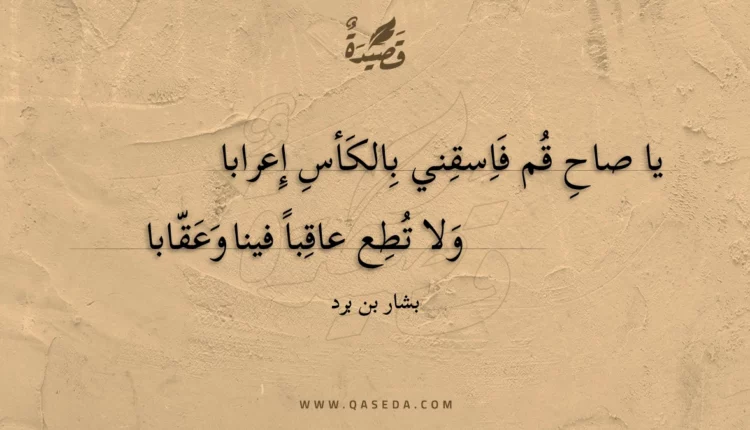 قَصِيدَةٌ
يا صاحِ قُم فَاِسقِني بِالكَأسِ إِعرابا
وَلا تُطِع عاقِباً فينا وَعَقّابا
بشار بن برد
WWW.QASEDA.COM